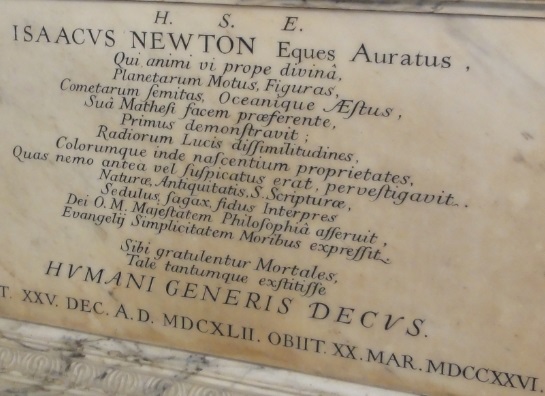 H. S. E.
ISAACVS NEWTON Eques Auratus,
Qui animi vi prope divinâ,
Planetarum Motus, Figuras,
Cometarum ſemitas, Oceanique Æſtus,
Suâ Matheſi facem præferente,
Primus demonſtravit;
Radiorum Lucis diſſimilitudines,
Colorumque inde naſcentium proprietates,
Quas nemo antea vel ſuſpicatus erat, perveſtigavit.
Naturæ, Antiquitatis, S. Scripturæ,
Sedulus, ſagax, fidus Interpres
Dei O. M. Majeſtatem Philoſophiâ aſſeruit,
Evangelij Simplicitatem Moribus expreſſit.
Sibi gratulentur Mortales,
Tale tantumque exſtitiſſe
HVMANI GENERIS DECVS.
T. XXV. DEC. A.D. MDCXLII. OBIIT. XX. MAR. MDCCXXVI.